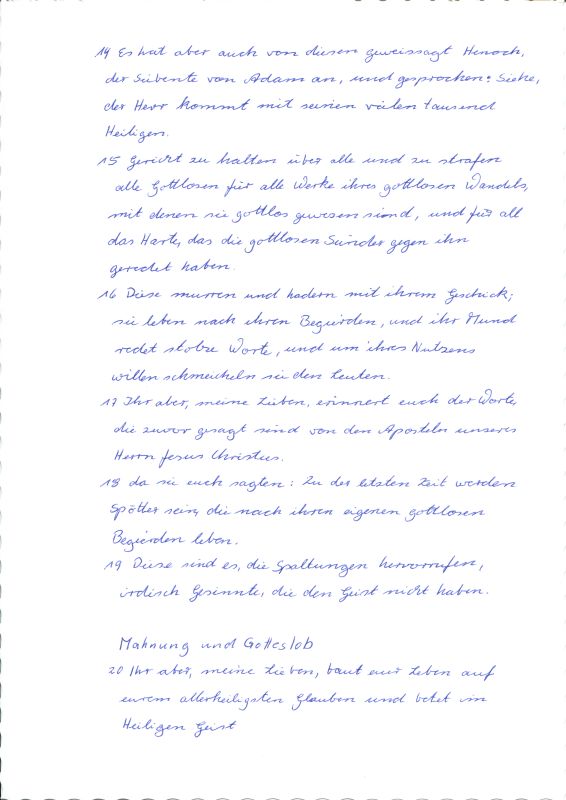 14 Es hat aber auch von diesen geweissagt Henoch,
der Siebente von Adam an, und gesprochen: Siehe,
der Herr kommt mit seinen vielen tausend
Heiligen.
15 Gericht zu halten über alle und zu strafen
alle Gottlosen für alle Werke ihres gottlosen Wandels,
mit denen sie gottlos gewesen sind, und für all
das Harte, das die gottlosen Sünder gegen ihn
geredet haben.
16 Diese murren und hadern mit ihrem Geschick;
sie leben nach ihren Begierden, und ihr Mund
redet stolze Worte, und um ihres Nutzens
willen schmeicheln sie den Leuten.
17 Ihr aber, meine Lieben, erinnert euch der Worte,
die zuvor gesagt sind von den Aposteln unseres
Herrn Jesus Christus.
18 da sie euch sagten: Zu der letzten Zeit werden
Spötter sein, die nach ihren eigenen gottlosen
Begierden leben.
19 Diese sind es, die Spaltungen hervorrufen,
irdisch Gesinnte, die den Geist nicht haben.
Mahnung und Gotteslob
20 Ihr aber, meine Lieben, baut euer Leben auf
eurem allerheiligsten Glauben und betet im
Heiligen Geist